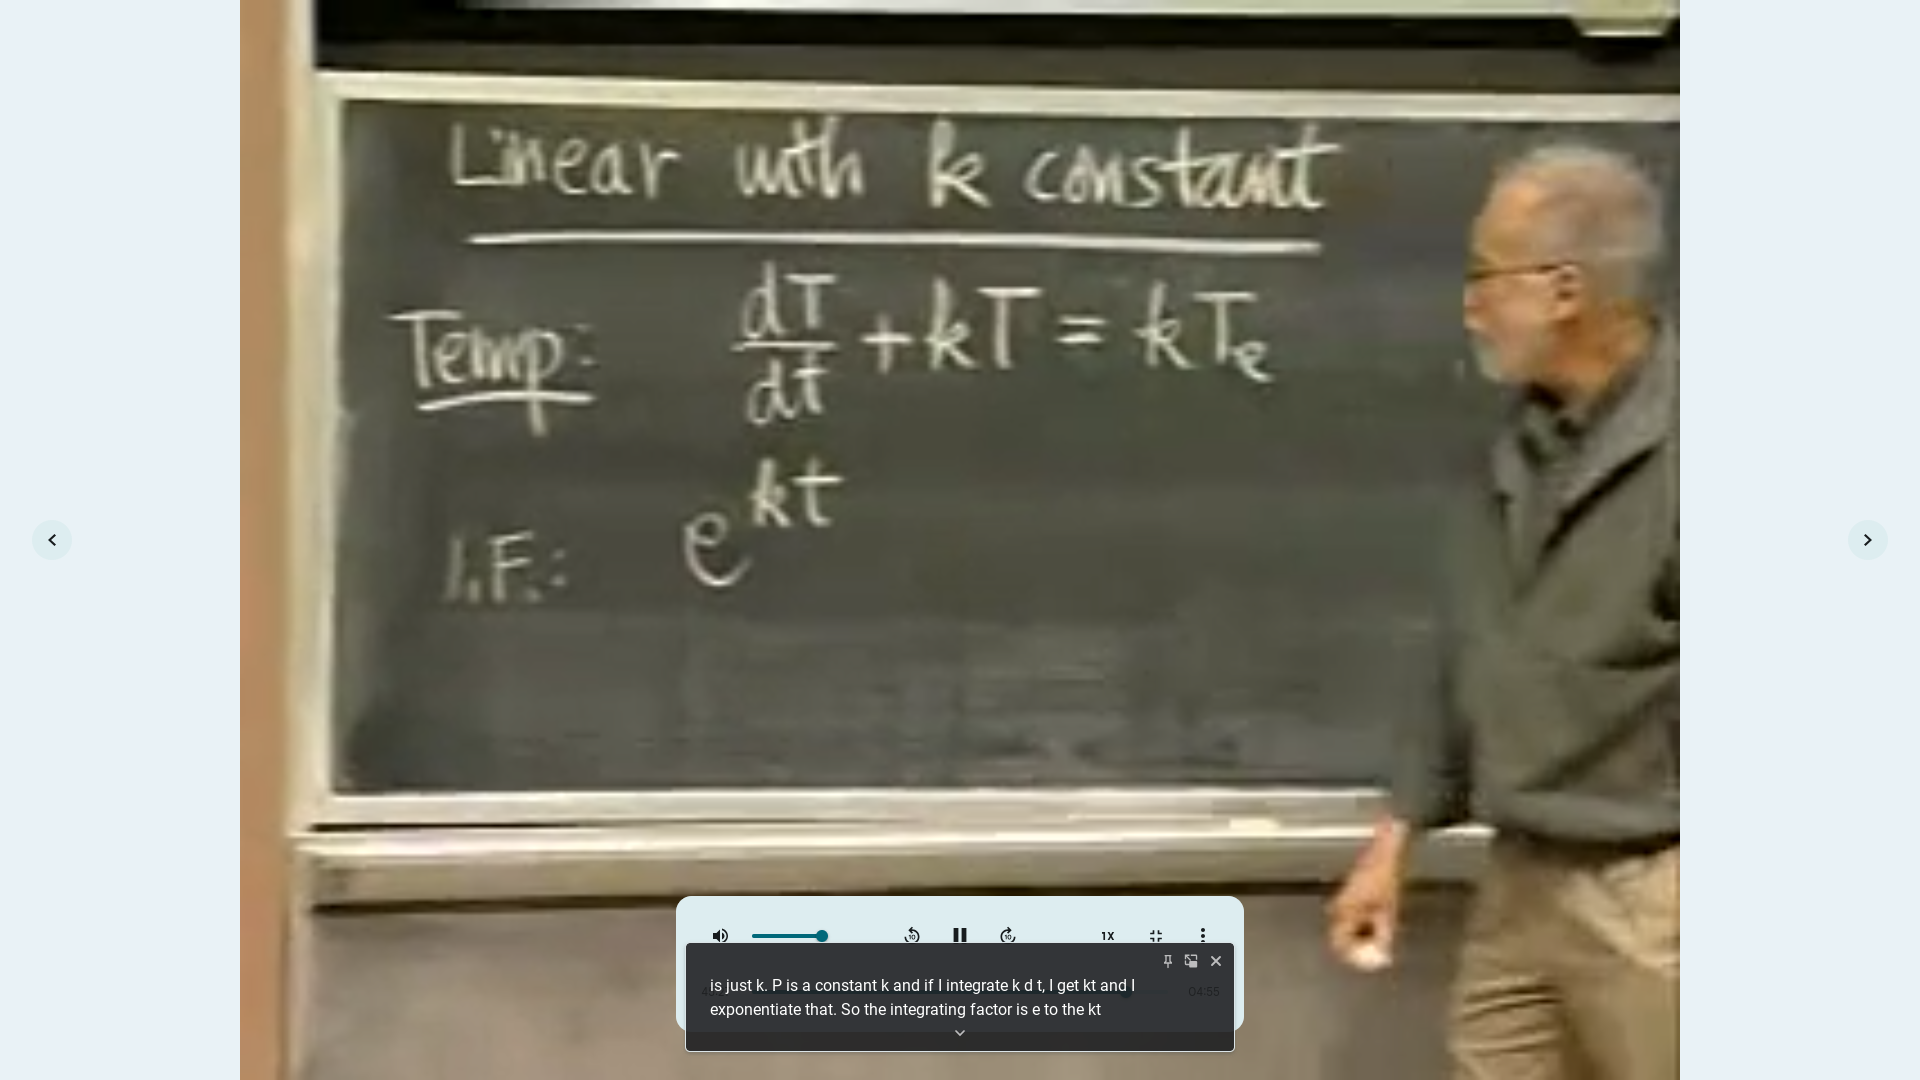 Linear with k constant
Temp: dT/dt + kT = kTe
I.F.: e^kt
1X
is just k. P is a constant k and if I integrate k d t, I get kt and I
exponentiate that. So the integrating factor is e to the kt
04:55